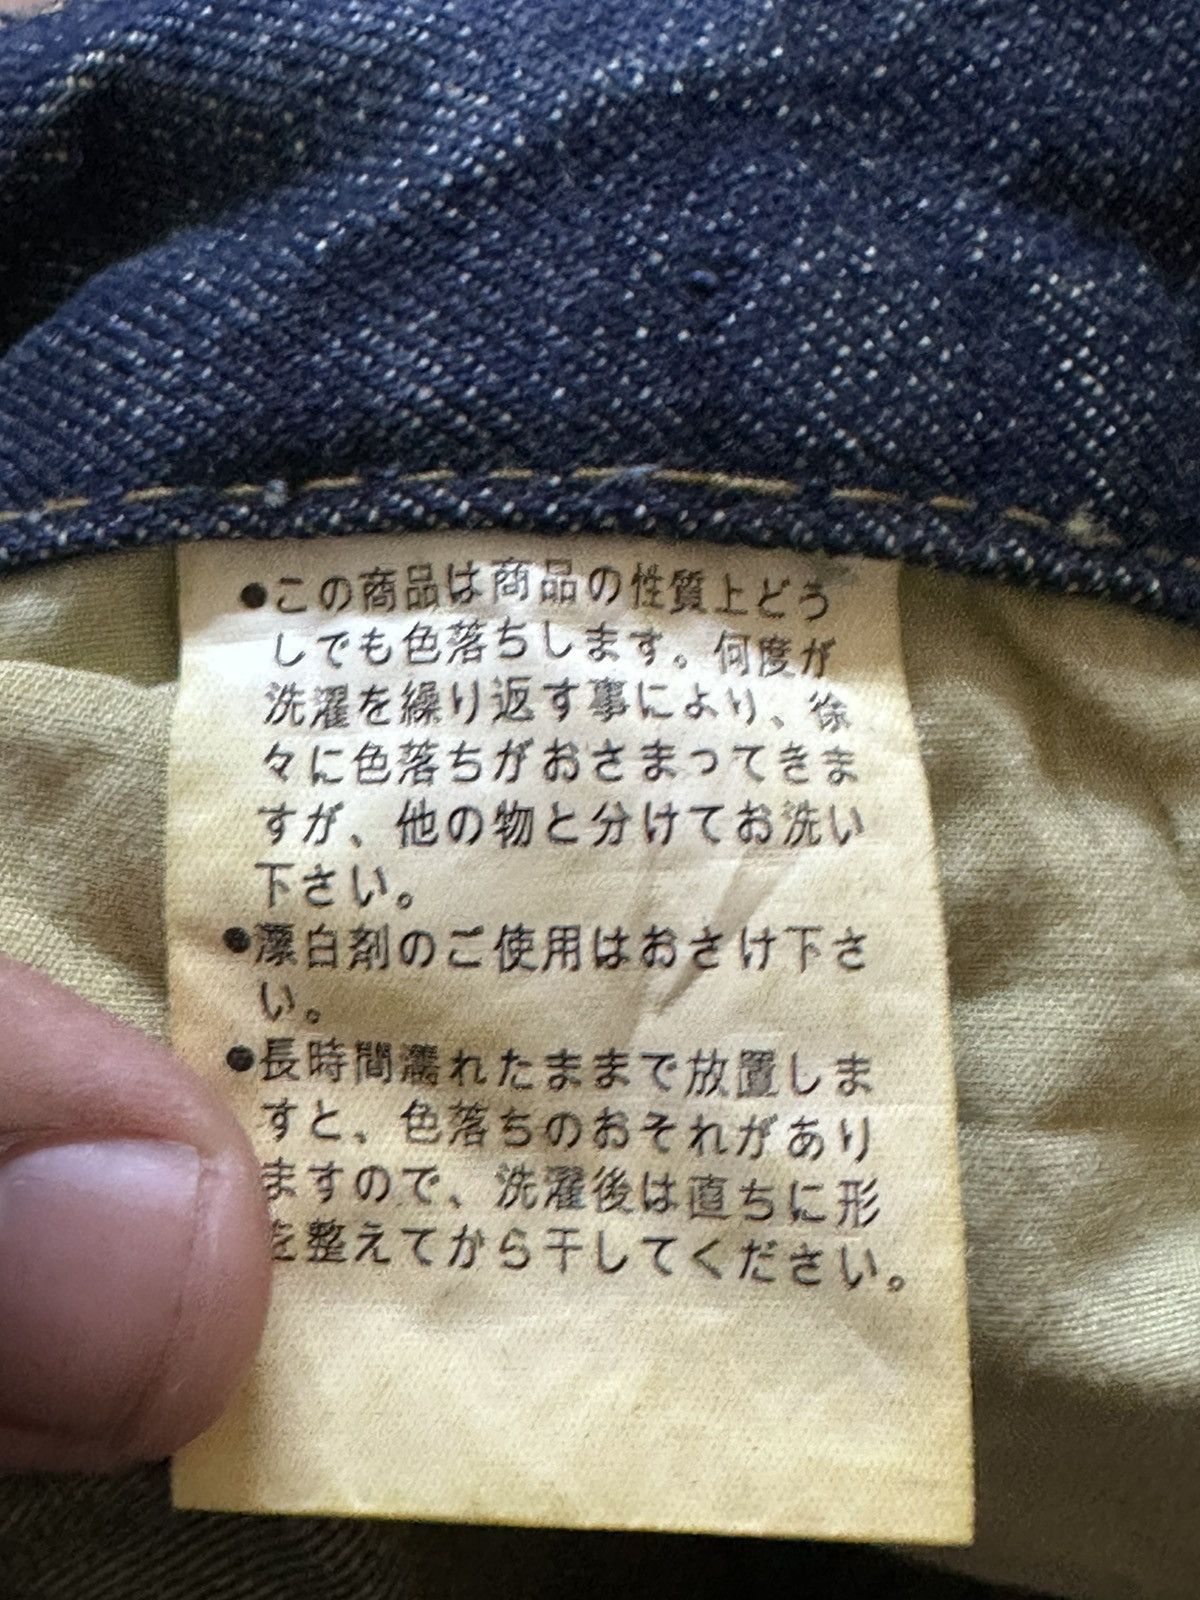 ●この商品は商品の性質上どう
しでも色落ちします。何度が
洗濯を繰り返す事により、徐
々に色落ちがおさまってきま
すが、他の物と分けてお洗い
下さい。
●漂白剤のご使用はおさけ下さ
い。
●長時間濡れたままで放置しま
すと、色落ちのおそれがあり
ますので、洗濯後は直ちに形
を整えてから干してください。